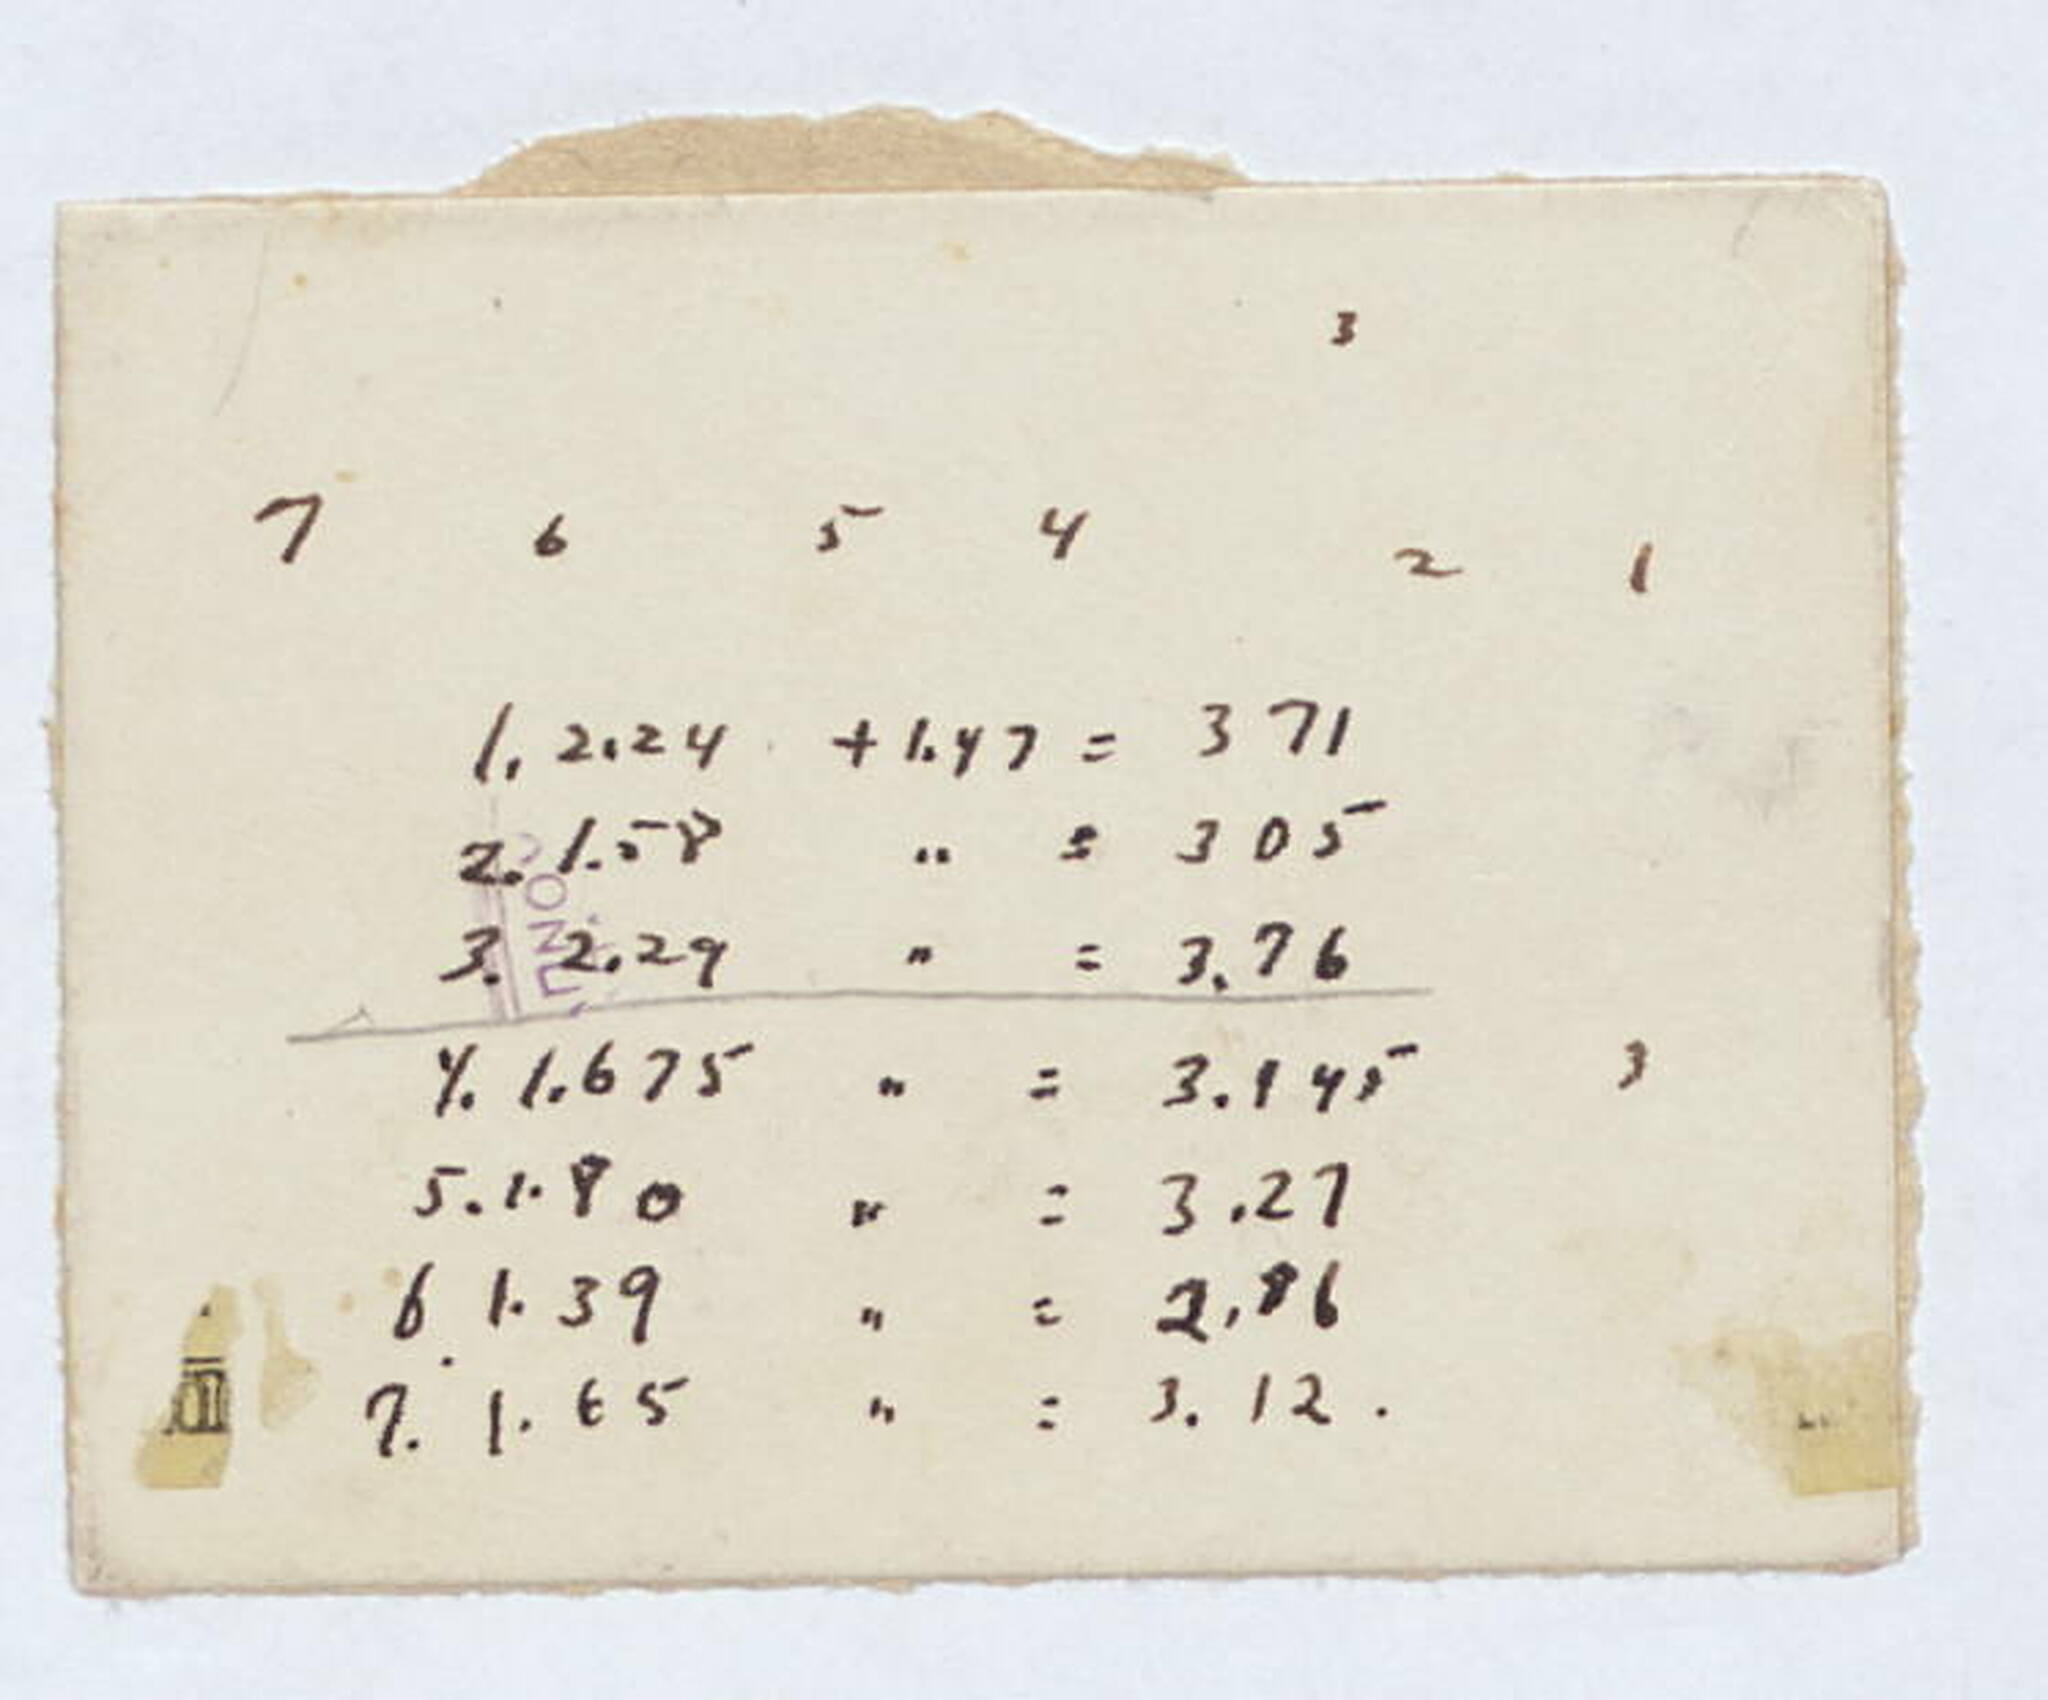 3
7 6 5 4 2 1
1. 2.24 + 1.47 = 3 71
2. 1.58 " = 3 05
3. 2.29 " = 3.76
4. 1.675 " = 3.145 3
5. 1.80 " = 3.27
6 1.39 " = 2.86
7. 1.65 " = 3.12.